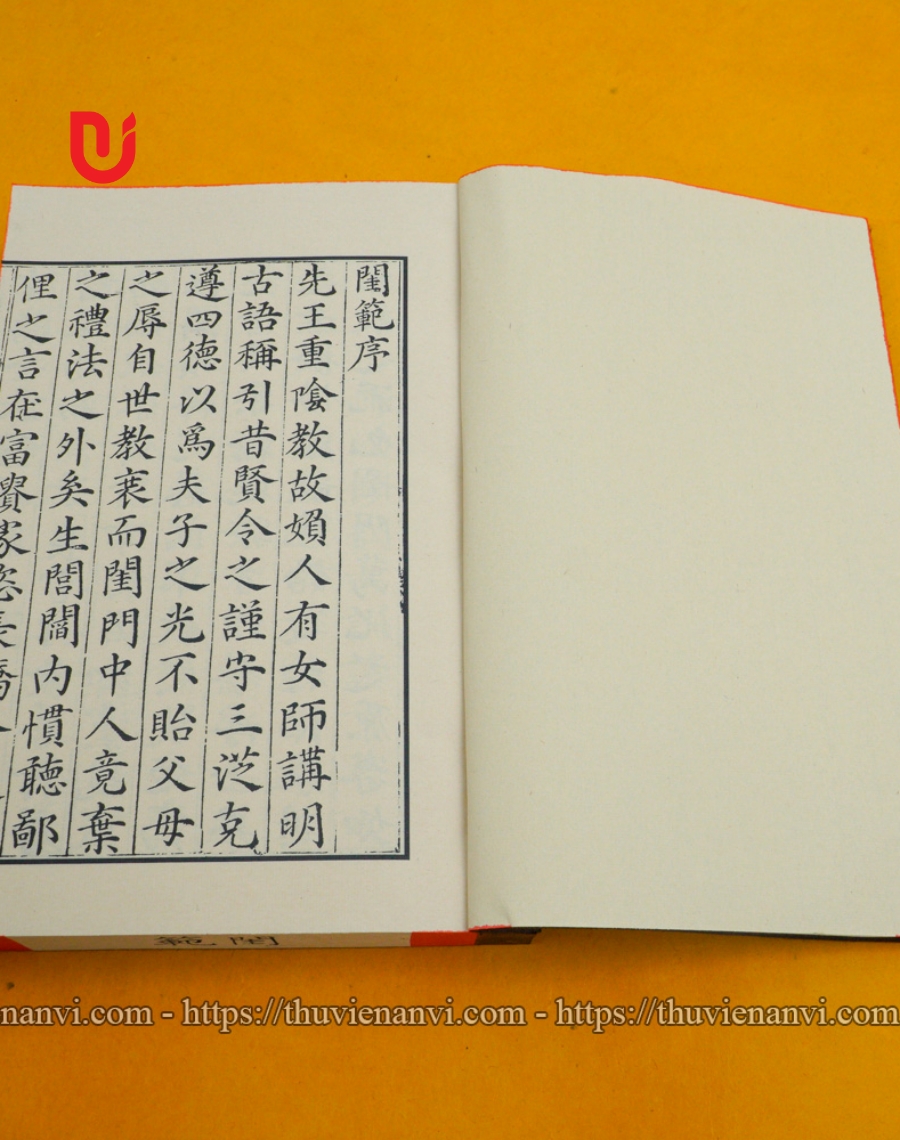 閨範序
先王重陰教故嬪人有女師講明
古語稱引昔賢令之謹守三從克
遵四德以爲夫子之光不貽父母
之辱自世教衰而閨門中人竟棄
之禮法之外矣生閭閻內慣聽鄙
俚之言在富貴家恣長
範 閨
nanvi.com - https://thuvienanvi.com - https://thuvienanvi.com